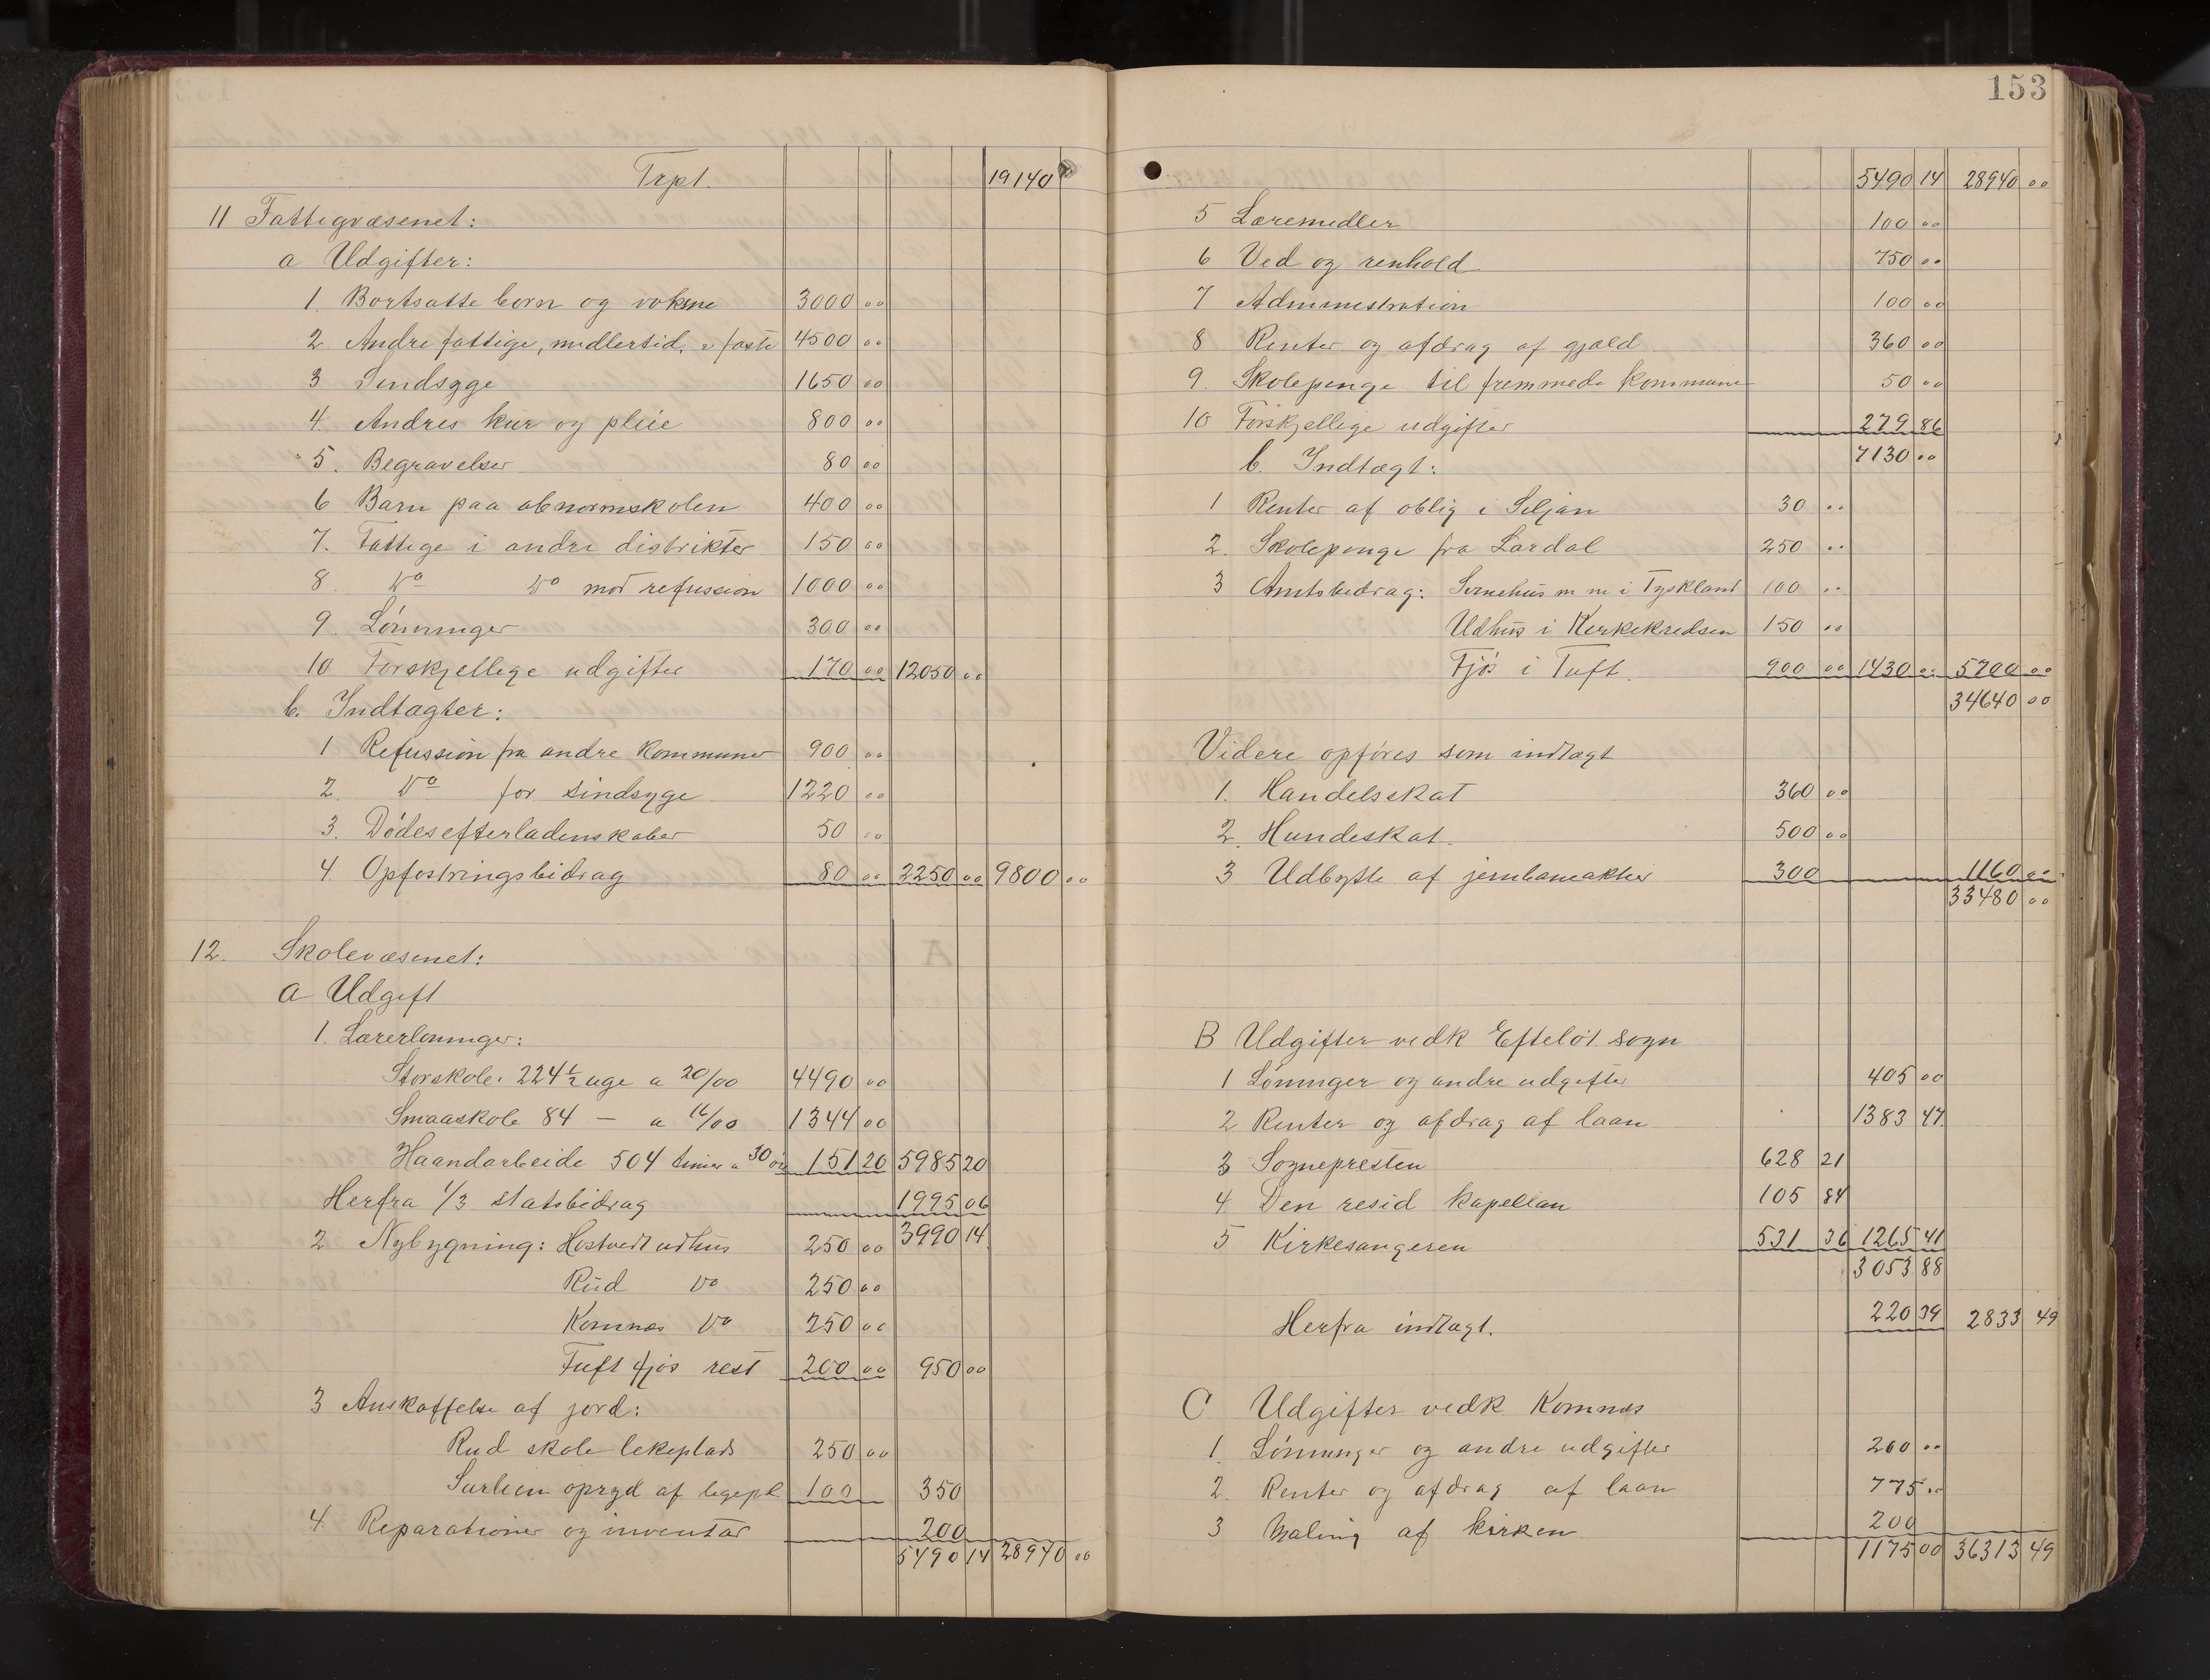 Trpt. 19140
11 Fattigvæsenet:
a Udgifter:
1. Bortsatte børn og voksne 3000 00
2 Andre fattige, midlertid. & faste 4500 00
3 Sindsyge 1650 00
4. Andres kur og pleie 800 00
5. Begravelser 80 00
6 Barn paa abnormskolen 400 00
7. Fattige i andre distrikter 150 00
8. Do Do mod refussion 1000 00
9. Lønninger 300 00
10 Forskjellige udgifter 170 00 12050 00
b. Indtægter:
1 Refussion fra andre kommuner 900 00
2. Do for sindsyge 1220 00
3. Dødesefterladenskaber 50 00
4. Opfostringsbidrag 80 00 2250 00 9800 00
12. Skolevæsenet:
a Udgift
1. Lærerlønninger:
Storskole: 224 1/2 uge a 20/00 4490 00
Smaaskole 84 — a 16/00 1344 00
Haandarbeide 504 timer a 30 ør 151 20 5985 20
Herfra 1/3 statsbidrag 1995 06
3990 14
2 Nybygning: Hostvedt udhus 250 00
Rud Do 250 00
Komnæs Do 250 00
Tuft fjøs rest 200 00 950 00
3 Anskaffelse af jord:
Rud skole lekeplads 250 00
opryd af legepl 100 350
4. Reparationer og inventar 200
5490 14 28940 00
153
5490 14 28940 00
5 Læremidler 100 00
6 Ved og renhold 750 00
7 Administration 100 00
8 Renter og afdrag af gjæld 360 00
9. Skolepenge til fremmede kommuner 50 00
10 Forskjellige udgifter 279 86
7130 00
b. Indtægt:
1 Renter af oblig i Seljan 30 00
2. Skolepenge fra Lardal 250 00
3 Amtsbidrag: m m i Tyskland 100 00
Udhus i Kirkekredsen 150 00
Fjøs i Tuft. 900 00 1430 00 5700 00
34640 00
Videre opføres som indtægt
1. Handelsskat 360 00
2. Hundeskat. 500 00
3 Udbytte af jernbaneaktier 300 1160 00
33480 00
B Udgifter vedk Efteløt sogn
1 Lønninger og andre udgifter 405 00
2 Renter og afdrag af laan 1383 47
3 Sognepresten 628 21
4. Den resid kapellan 105 84
5 Kirkesangeren 531 36 1265 41
3053 88
Herfra indtægt. 220 39 2833 49
C Udgifter vedk Komnæs
1. Lønninger og andre udgifter 200 00
2. Renter og afdrag af laan 775 00
3 Maling af kirken 200
1175 00 36313 49